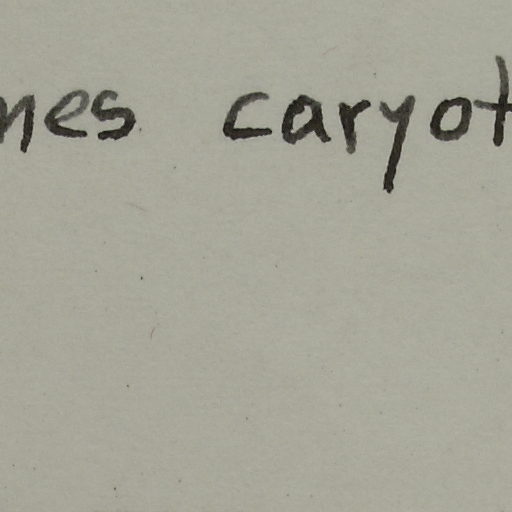 nes caryot